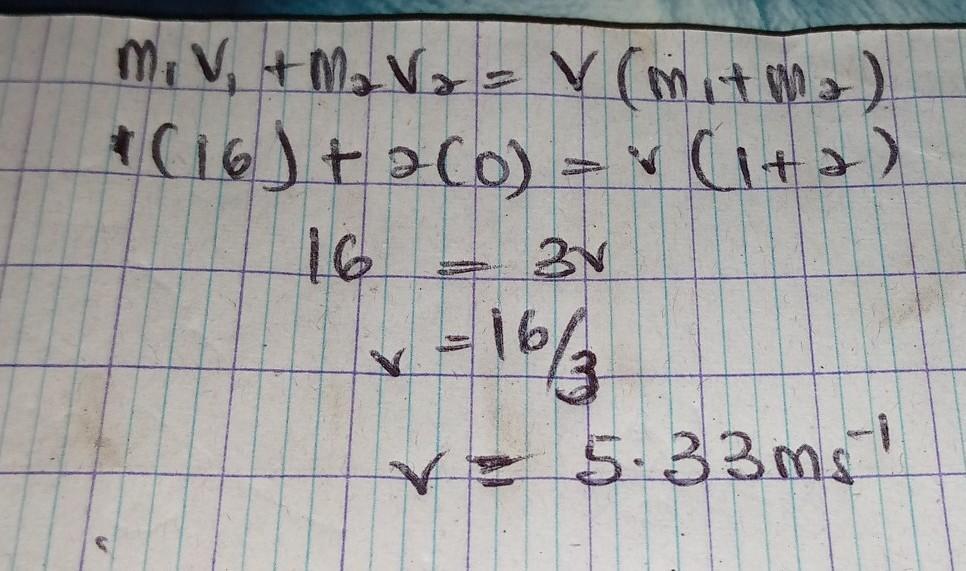 m₁v₁ + m₂v₂ = v(m₁ + m₂)
1(16) + 2(0) = v(1 + 2)
16 = 3v
v = 16/3
v = 5.33ms⁻¹